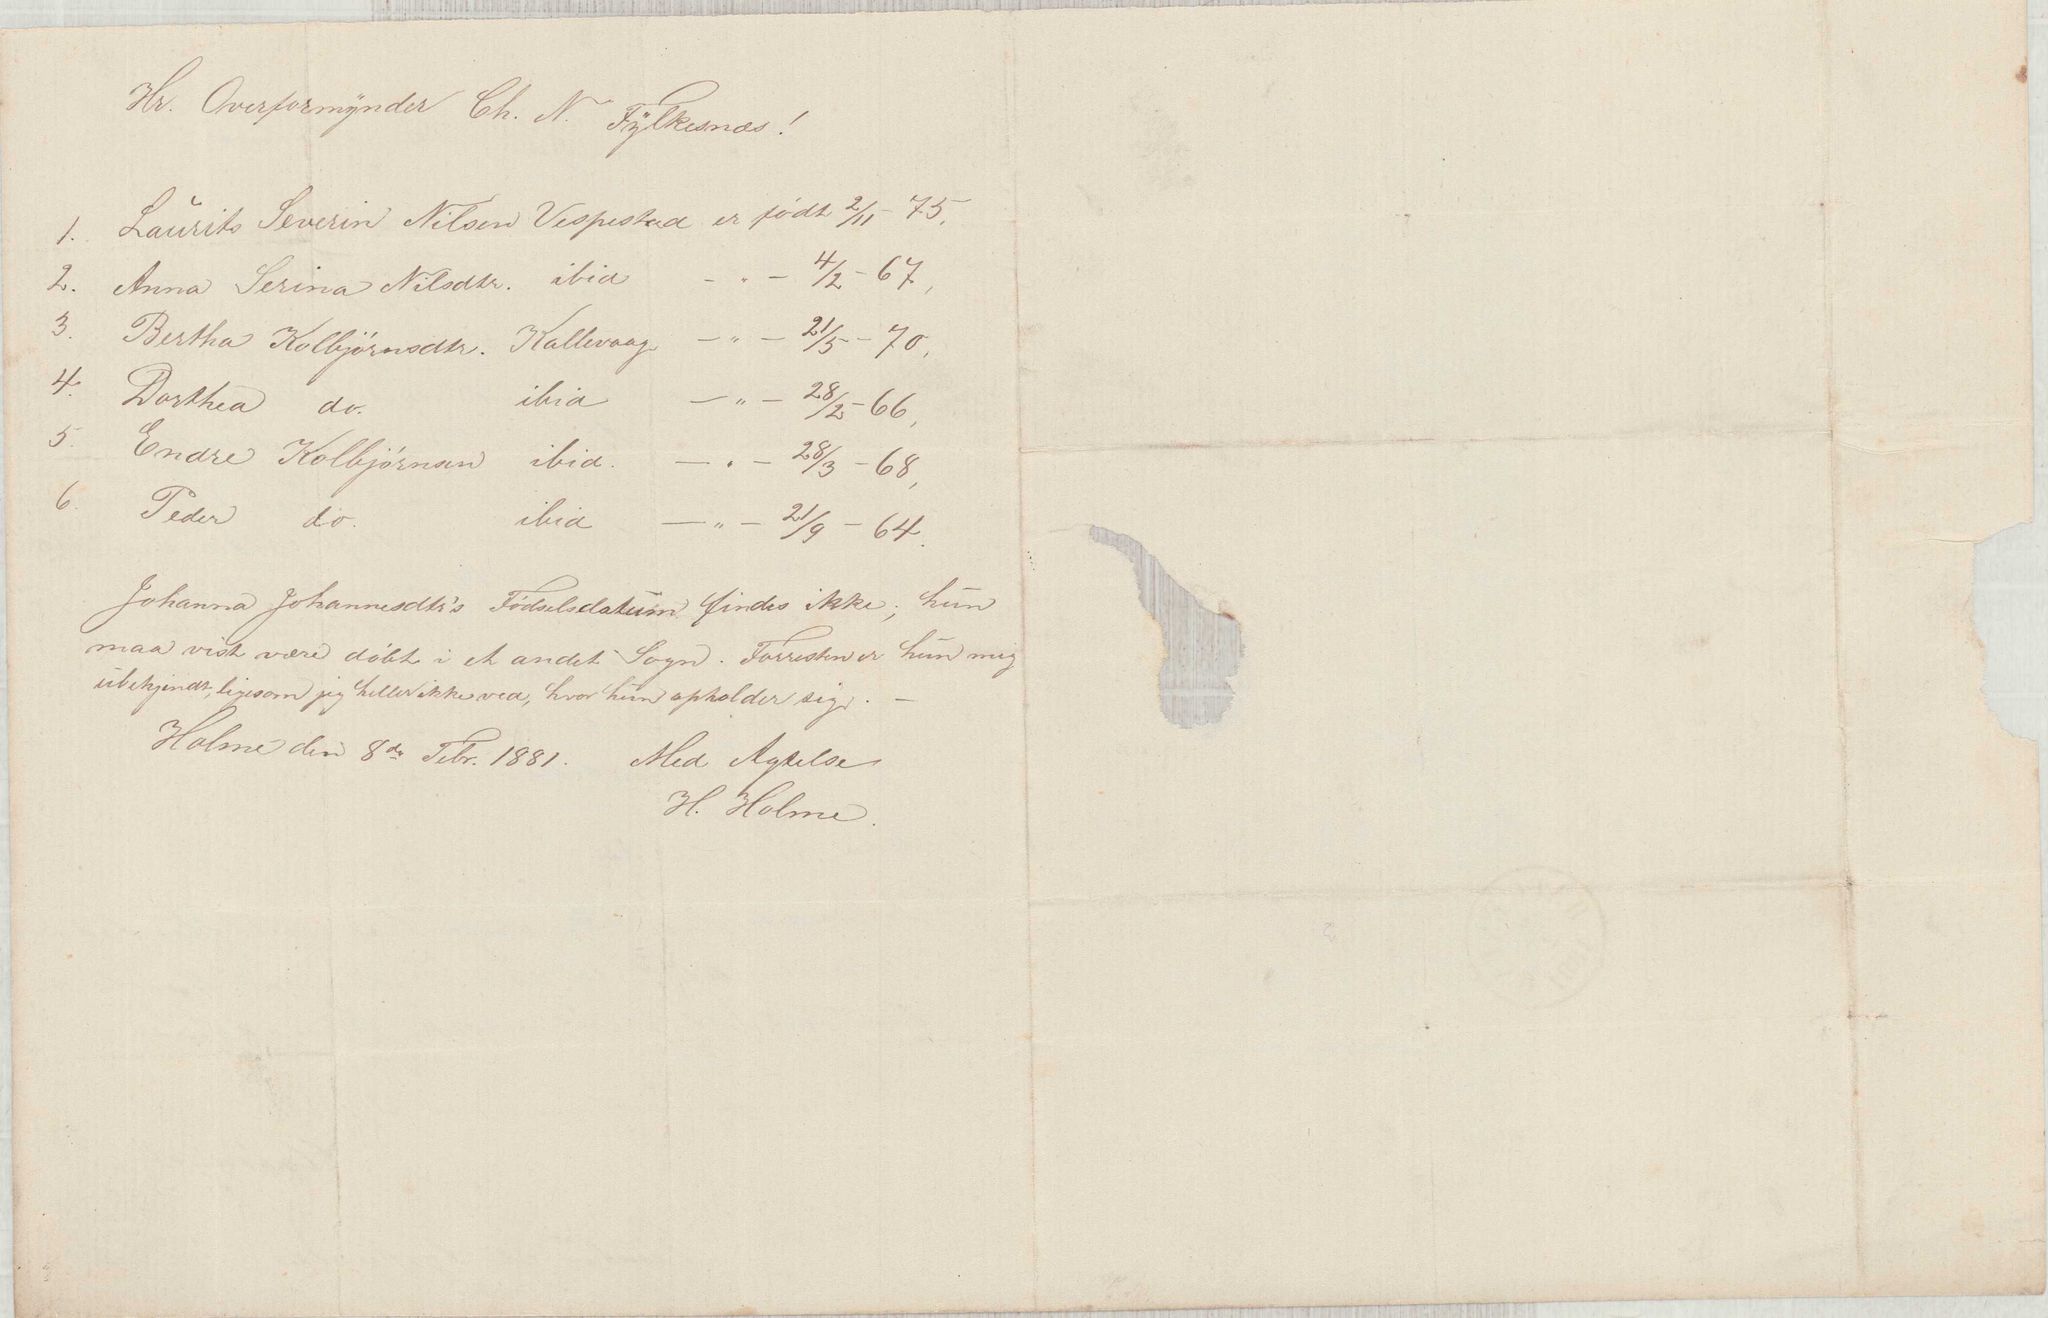 Hr. Overformynder Ch. N. Fylkesnæs!
1. Laurits Severin Nilsen Vespestad er födt 2/11 - 75,
2. Anna Serina Nilsdtr. ibid - " - 4/2 - 67,
3. Bertha Kolbjörnsdtr. Kallevaag - " - 21/5 - 70,
4. Dorthea do. ibid - " - 28/2 - 66,
5. Endre Kolbjörnsen ibid. - " - 28/3 - 68,
6. Peder do. ibid - " - 21/9 - 64.
Johanna Johannesdtr's Födselsdatum findes ikke; hun
maa vist være döbt i et andet Sogn. Forresten er hun mig
ubekjendt, ligesom jeg heller ikke ved, hvor hun opholder sig. -
Holme den 8de Febr. 1881. Med Agtelse
H. Holme.